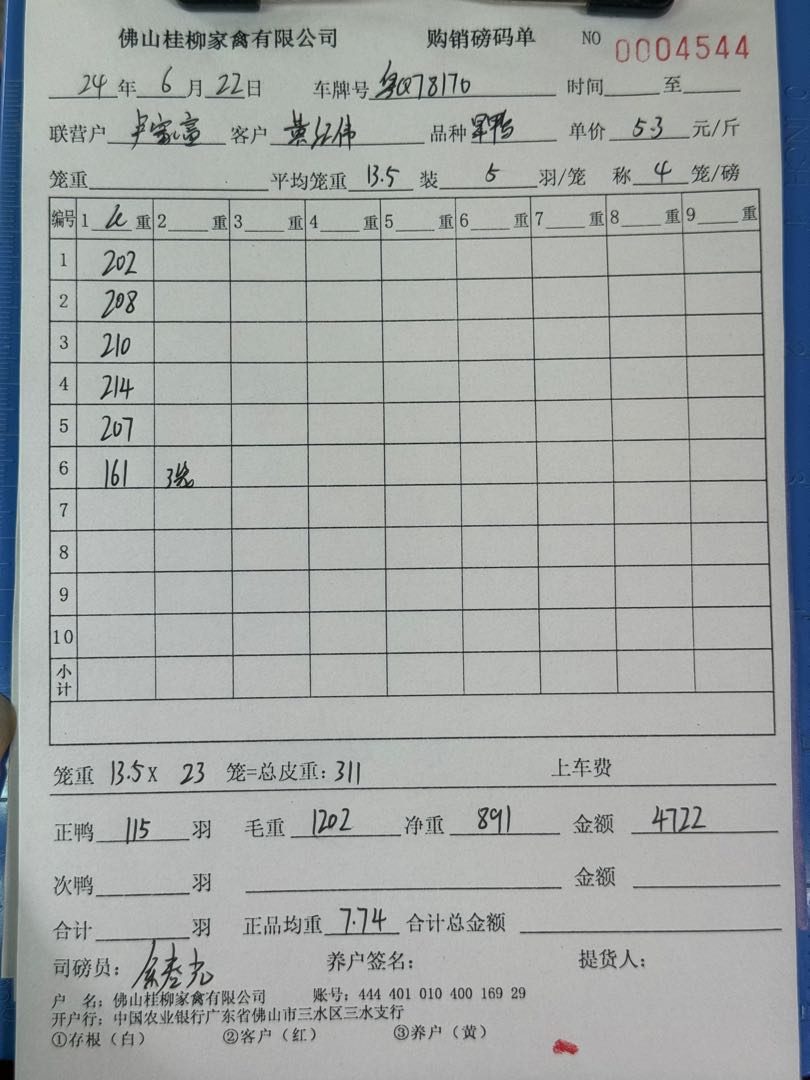 佛山桂柳家禽有限公司 购销磅码单 NO 0004544
24年 6月 22日 车牌号 粤Q78170 时间 至
联营户 卢家富 客户 黄红伟 品种 单价 5.3 元/斤
笼重 平均笼重 13.5 装 5 羽/笼 称 4 笼/磅
编号 1 重 2 重 3 重 4 重 5 重 6 重 7 重 8 重 9 重
1 202
2 208
3 210
4 214
5 207
6 161 3笼
7
8
9
10
小计
笼重 13.5 X 23 笼=总皮重: 311 上车费
正鸭 115 羽 毛重 1202 净重 891 金额 4722
次鸭 羽 金额
合计 羽 正品均重 7.74 合计总金额
司磅员: 养户签名: 提货人:
户 名: 佛山桂柳家禽有限公司 账号: 444 401 010 400 169 29
开户行: 中国农业银行广东省佛山市三水区三水支行
①存根(白) ②客户(红) ③养户(黄)